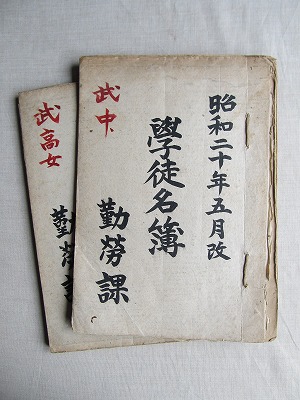 昭和二十年五月改
學徒名簿
武中
勤勞課
武高女
勤勞課